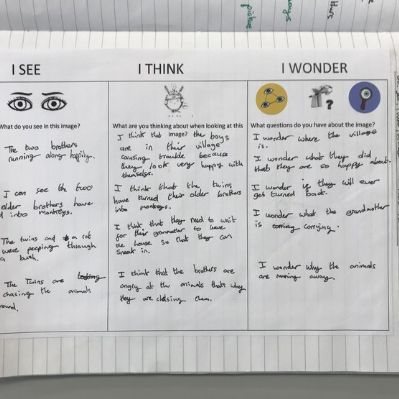 I SEE
What do you see in this image?
The two brothers
running along happily.
I can see the two
older brothers have
into monkeys.
The twins and a rat
were peeping through
a bush.
The Twins are
chasing the animals
round.
I THINK
What are you thinking about when looking at this
I think this image? the boys
are in their village
causing trouble because
they look very happy with
themselves.
I think that the twins
have turned their older brothers
into monkeys.
I think that they need to wait
for their grandmother to leave
the house so that they can
sneak in.
I think that the brothers are
angry at the animals that's why
they are chasing them.
I WONDER
What questions do you have about the image?
I wonder where the village
is.
I wonder what they did
that they are so happy about.
I wonder if they will ever
get turned back.
I wonder what the grandmother
is carrying.
I wonder why the animals
are running away.